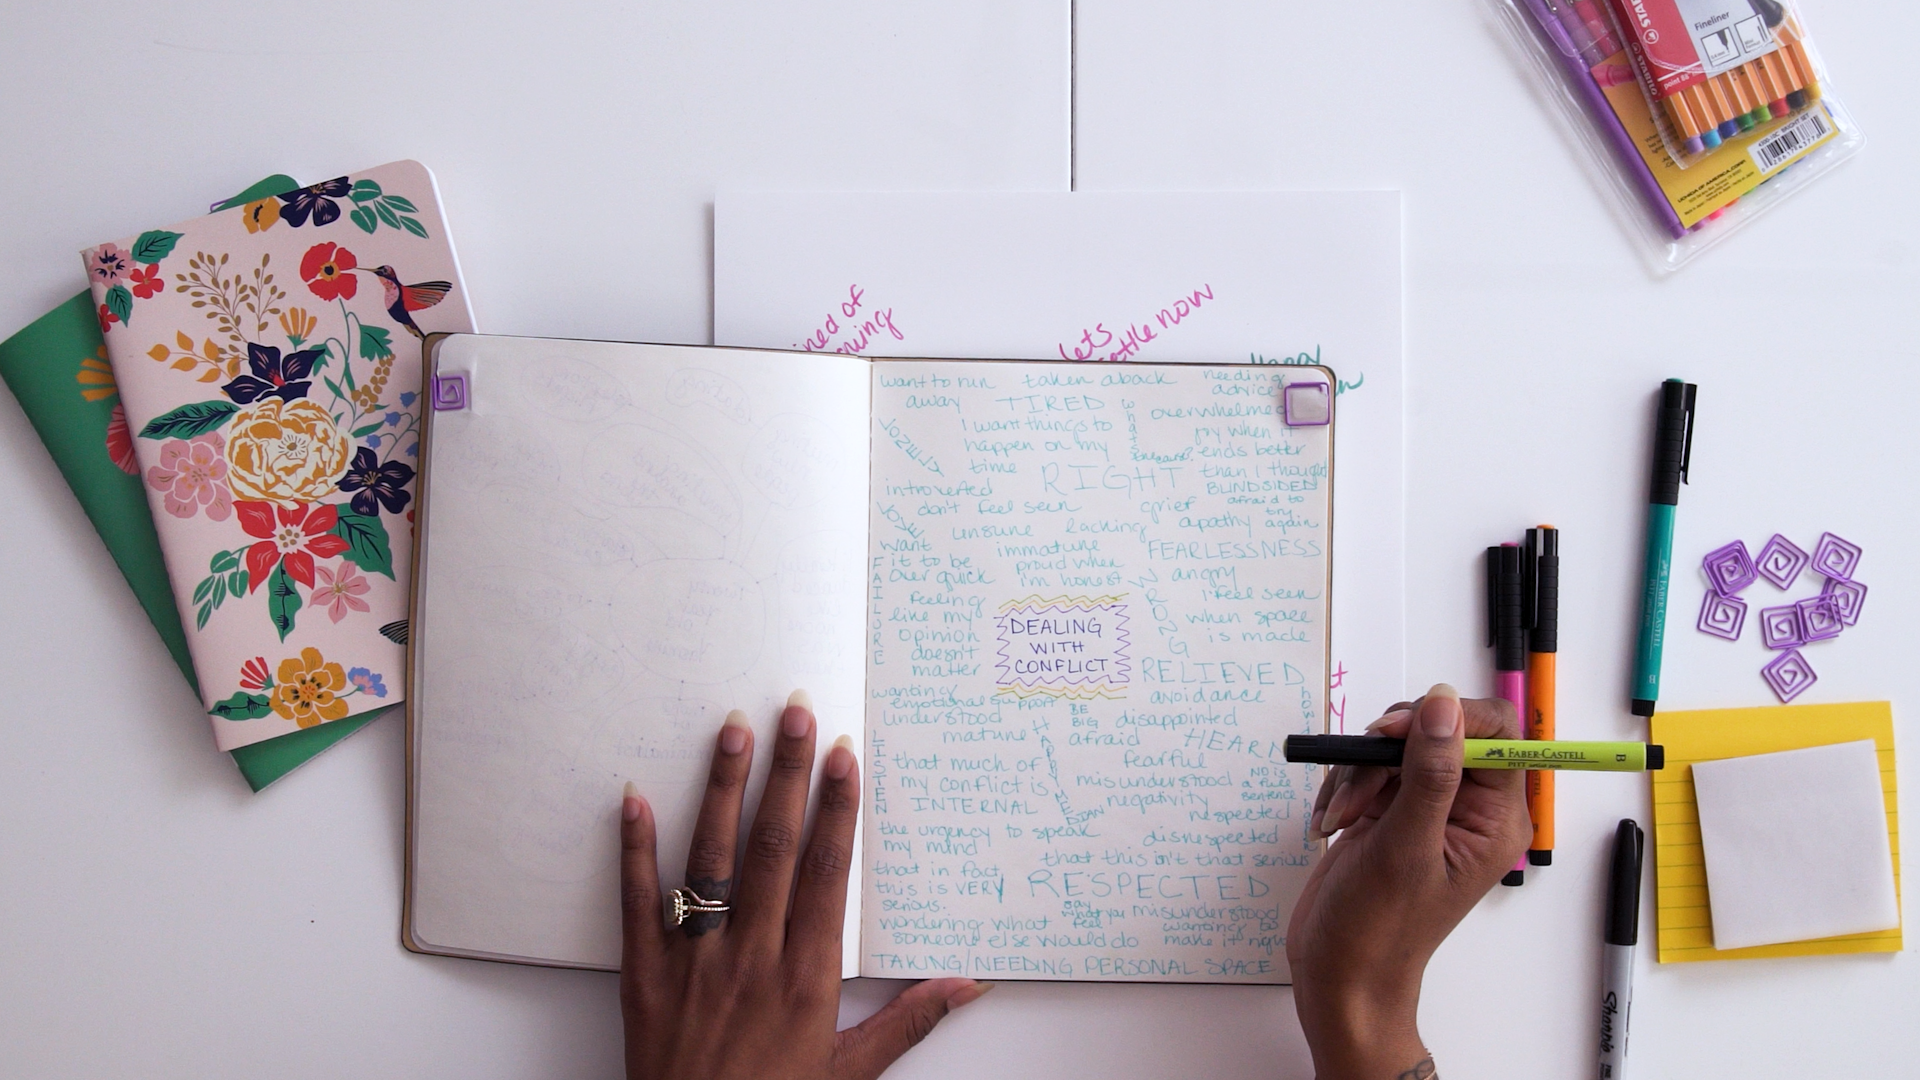 STABILO
Fineliner
point 88
lets
settle now
want to run
away
taken aback
needing
advice
TIRED
I want things to
happen on my
time
overwhelmed
joy when it
ends better
than I thought
RIGHT
BLINDSIDED
introverted
don't feel seen
grief
afraid to
try
again
LOVE
unsure
lacking
apathy
want
it to be
over quick
immature
FEARLESSNESS
proud when
i'm honest
angry
FAILURE
WRONG
feeling
like my
opinion
doesn't
matter
i feel seen
when space
is made
DEALING
WITH
CONFLICT
RELIEVED
wanting
emotional support
avoidance
understood
BE
BIG
disappointed
mature
afraid
HEARD
LISTEN
that much of
my conflict is
INTERNAL
fearful
misunderstood
NO is
a full
sentence
negativity
respected
the urgency to speak
my mind
disrespected
that this isn't that serious
that in fact
this is VERY
serious.
RESPECTED
say
what you
feel
misunderstood
wondering what
someone else would do
wanting to
make it right
TAKING/NEEDING PERSONAL SPACE
FABER-CASTELL
PITT artist pen
B
Sharpie